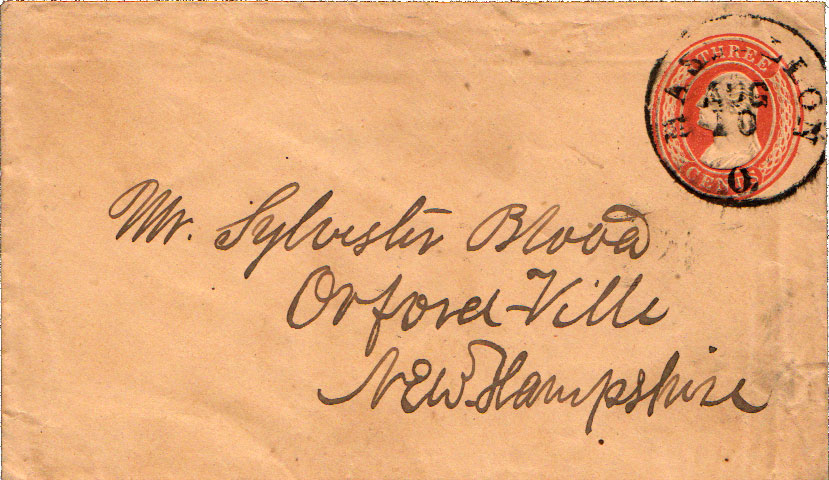 THREE
MASSILLON
AUG
10
O.
CENTS
Mr. Sylvester Blood
Orford-Ville
New. Hampshire